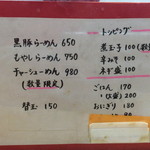 黒豚らーめん 650
もやしらーめん 750
チャーシューめん 980
(数量限定)
替玉 150
トッピング
煮玉子 100
辛みそ 100
ネギ盛 100
ごはん 170
おにぎり 180